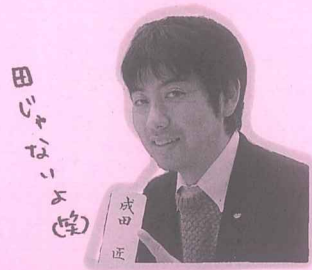 田じゃないよ(笑)
成田 匠